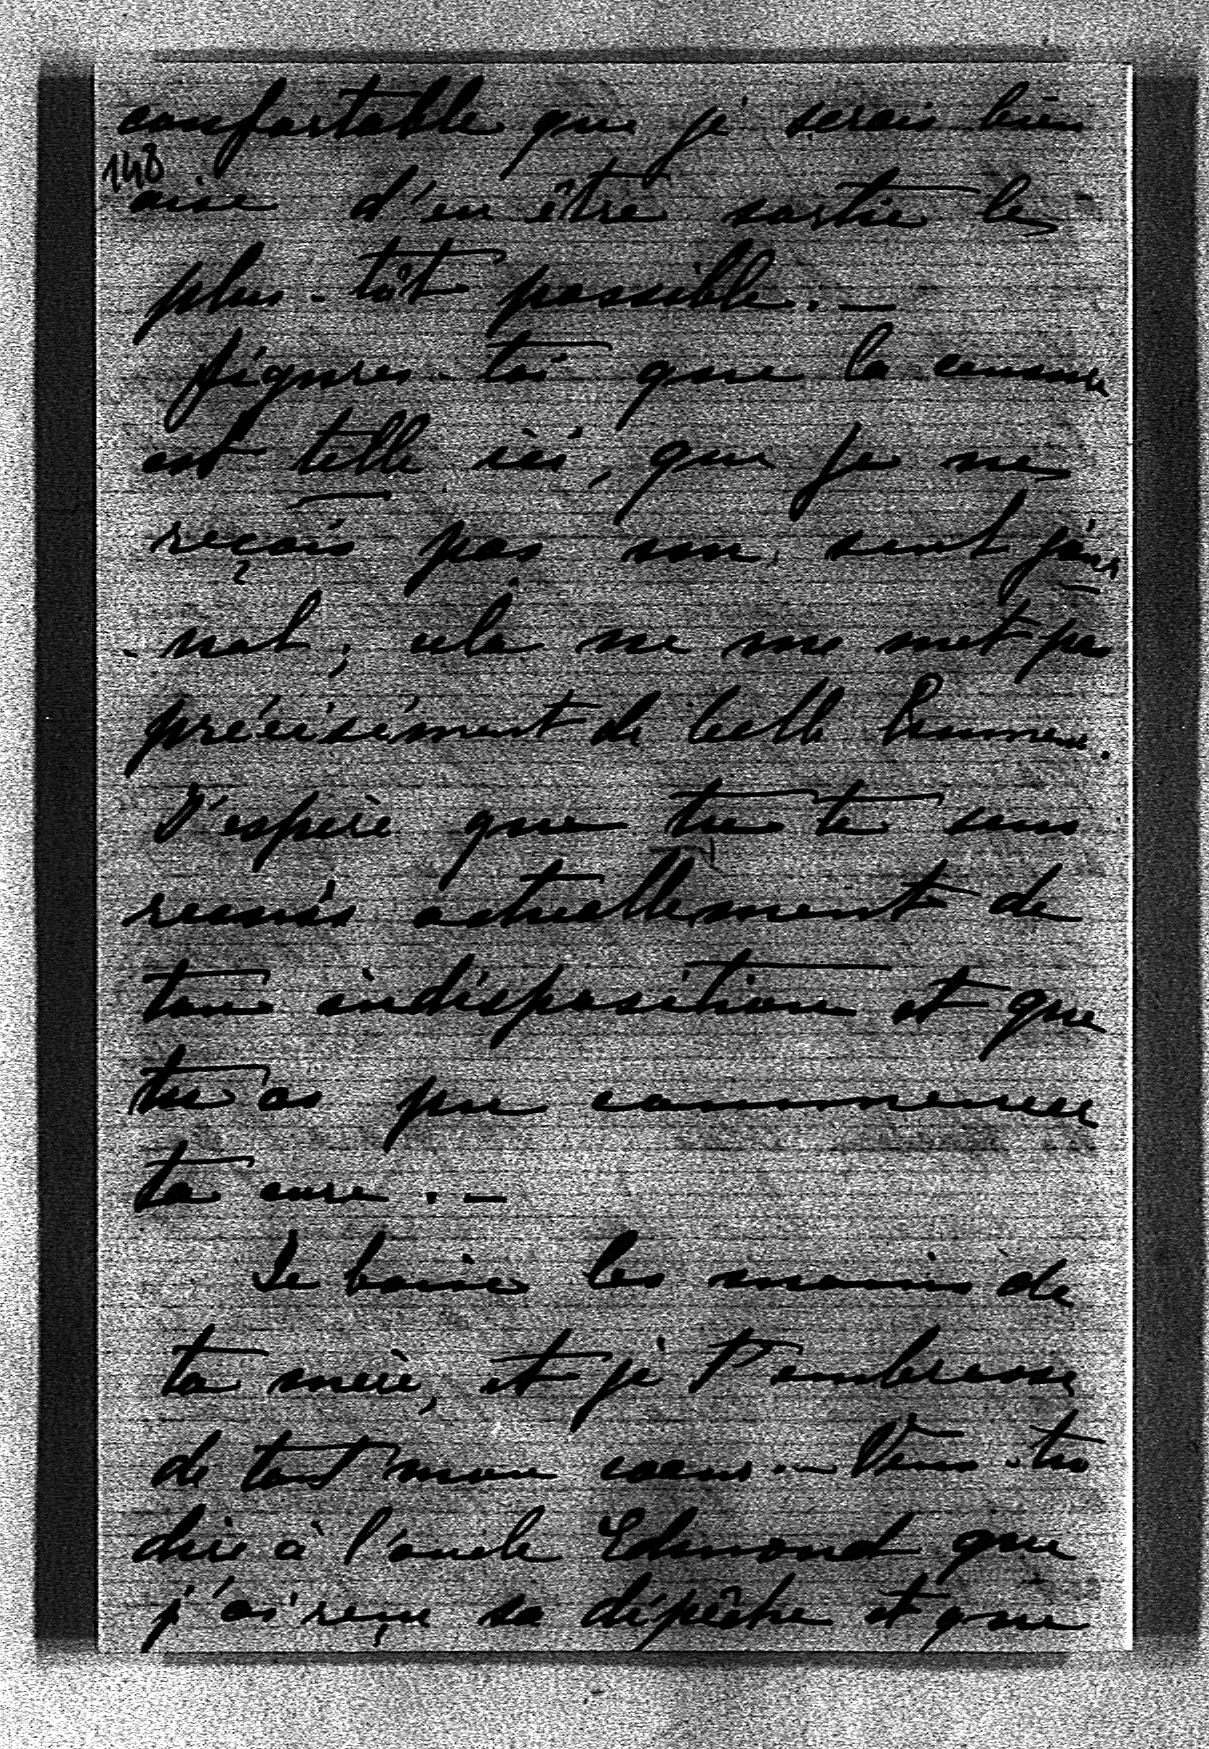 confortable que je serais bien
148
aise d'en être sortie le
plus-tôt possible. —
figures-toi que la censure
est telle ici, que je ne
reçois pas un seul jour
-nal; cela ne me met pas
précisément de belle humeur.
J'espère que tu te sens
remis actuellement de
ton indisposition et que
tu as pu commencer
ta cure. —
Je baise les mains de
ta mère, et je t'embrasse
de tout mon coeur. — Veux-tu
dire à l'oncle Edmond que
j'ai reçu sa dépêche et que